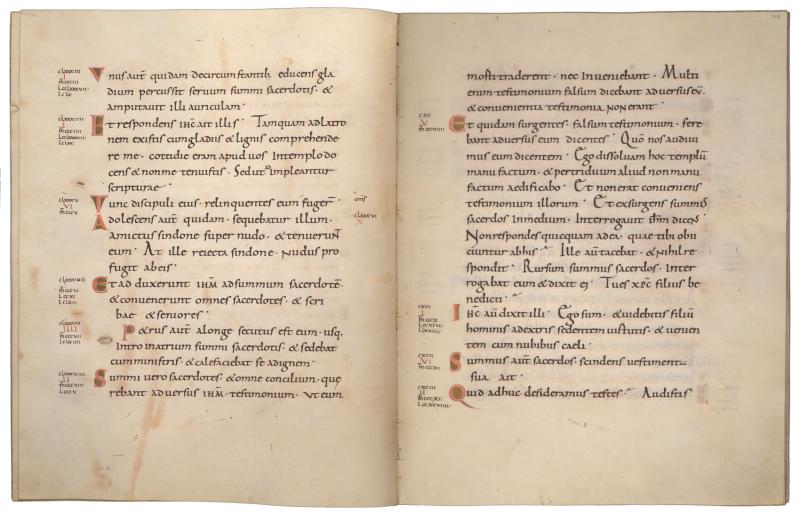 Vnus aut quidam decircumstantib, educens gla
dium percussit seruum summi sacerdotis · &
amputauit illi auriculam ·
Et respondens ihc ait illis · Tamquam adlatro
nem existis cumgladiis & lignis comprehende
re me · cotidie eram apud uos Intemplo do
cens & nonme tenuistis · Sedut impleantur
scripturae
Tunc discipuli eius · relinquentes eum fuger
Adolescens aut quidam · sequebatur illum ·
Amictus sindone super nudo · & tenuerunt
eum · At ille reiecta sindone · Nudus pro
fugit abeis ·
Et ad duxerunt ihm adsummum sacerdote
& conuenerunt omnes sacerdotes · & scri
bae & seniores
P&rus aut alonge secutus est eum · usq,
Intro inatrium summi sacerdotis · & sedebat
cumministris · & calefaciebat se adignem
Summi uero sacerdotes · & omne concilium · quę
rebant aduersus ihm · testimonium · Vt eum
morti traderent · nec Inueniebant · Multi
enim testimonium falsum dicebant aduersus eū
& conuenientia testimonia non erant ·
Et quidam surgentes · falsum testimonium · fere
bant aduersus eum dicentes Quō nos audiui
mus eum dicentem · Ego dissoluam hoc templū
manu factum · & pertriduum aliud nonmanu
factum aedificabo · Et nonerat conueniens
testimonium illorum · Et exsurgens summus
sacerdos inmedium · Interrogauit ihm dicens
Nonrespondes quicquam adea · quae tibi obii
ciuntur abhis · Ille aūtacebat · & nihil re
spondit · Rursum summus sacerdos · Inter
rogabat eum & dixit ei · Tues xpc filius be
nedicti ·
Ihc aū dixit illi · Ego sum · & uidebitis filiū
hominis adextris sedentem uirtutis · & uenien
tem cum nubibus caeli ·
Summus aut sacerdos · scindens uestiment
sua ait
Quid adhuc desideramus testes · Audistis